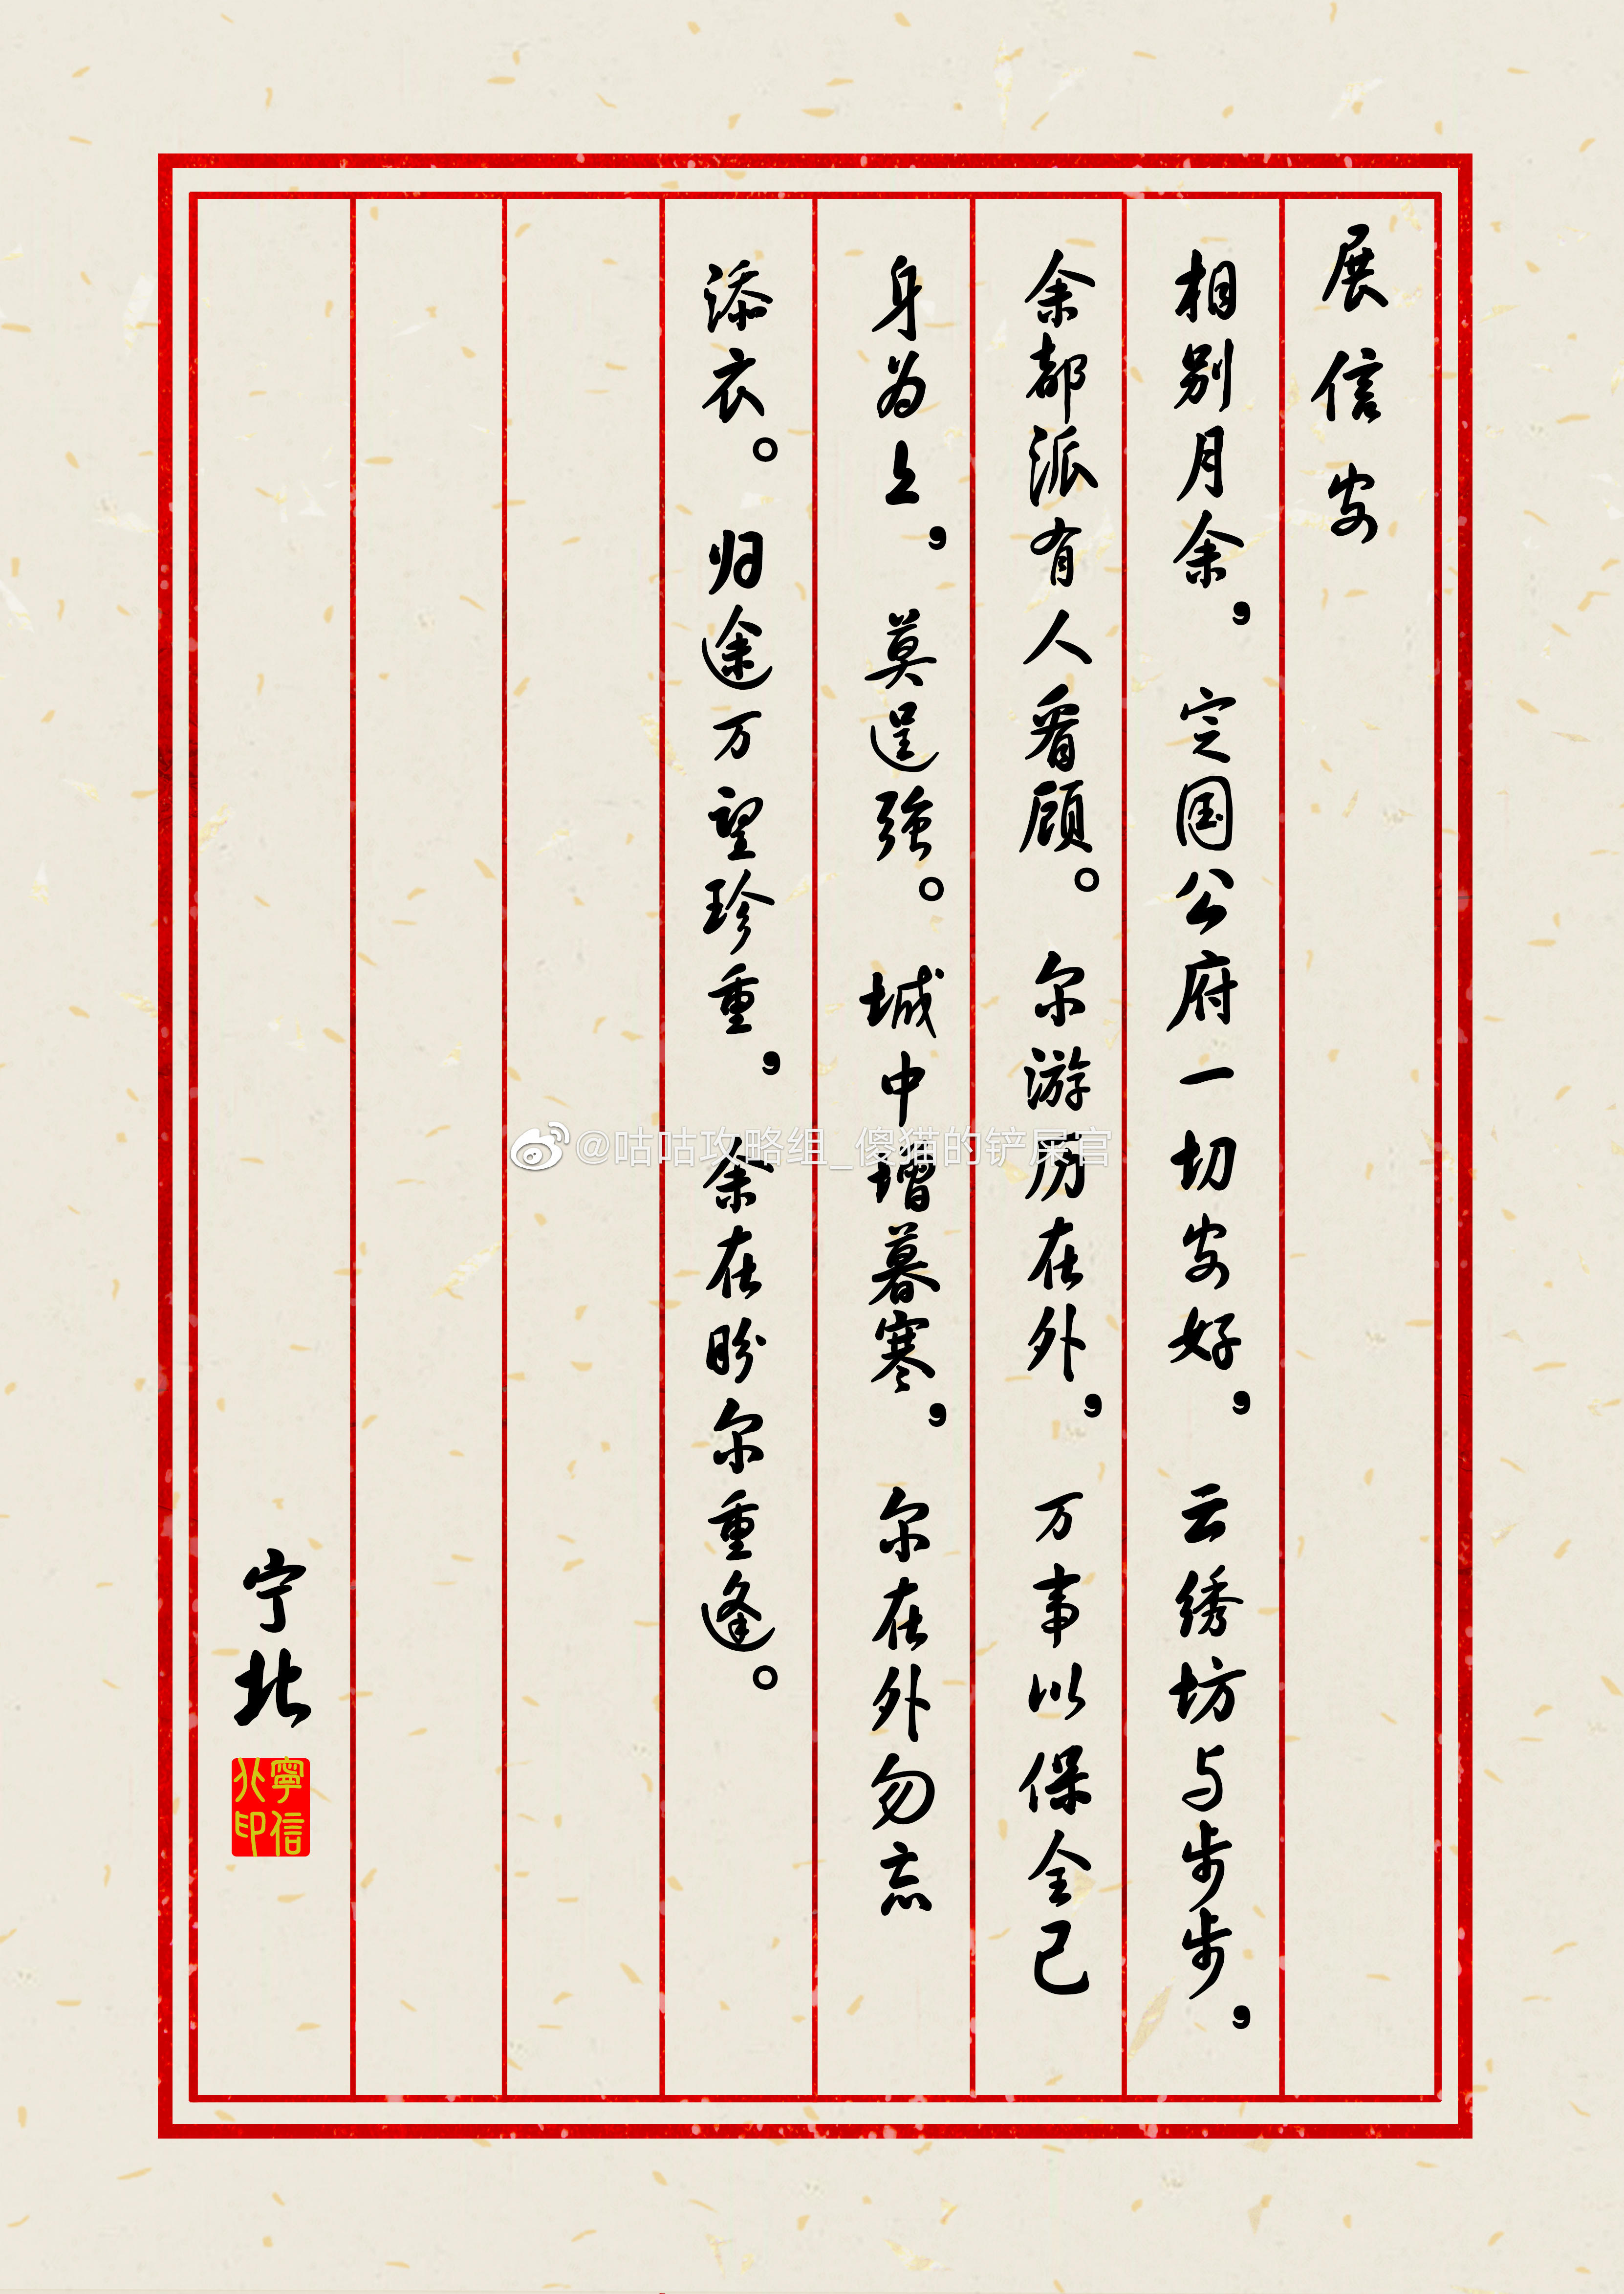 展信安
相别月余，定国公府一切安好，云绣坊与步步，
余都派有人看顾。尔游历在外，万事以保全己
身为上，莫逞强。城中增暮寒，尔在外勿忘
添衣。归途万望珍重，余在盼尔重逢。
宁北
寧信
北印
@咕咕攻略组_傻猫的铲屎官